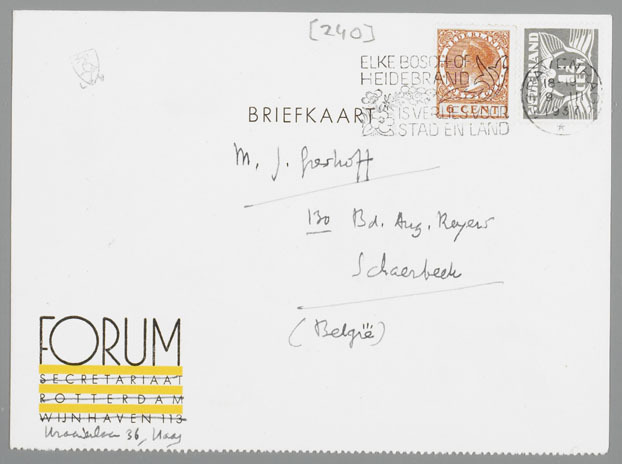 [240]
ELKE BOSCH OF
HEIDEBRAND
IS VERLIES VOOR
STAD EN LAND
NEDERLAND
6 CENT
NEDERLAND
1½
BRIEFKAART
M. J. Greshoff
130 Bd. Aug. Reyers
Schaerbeek
(België)
FORUM
SECRETARIAAT
ROTTERDAM
WIJNHAVEN 113
36, Haag